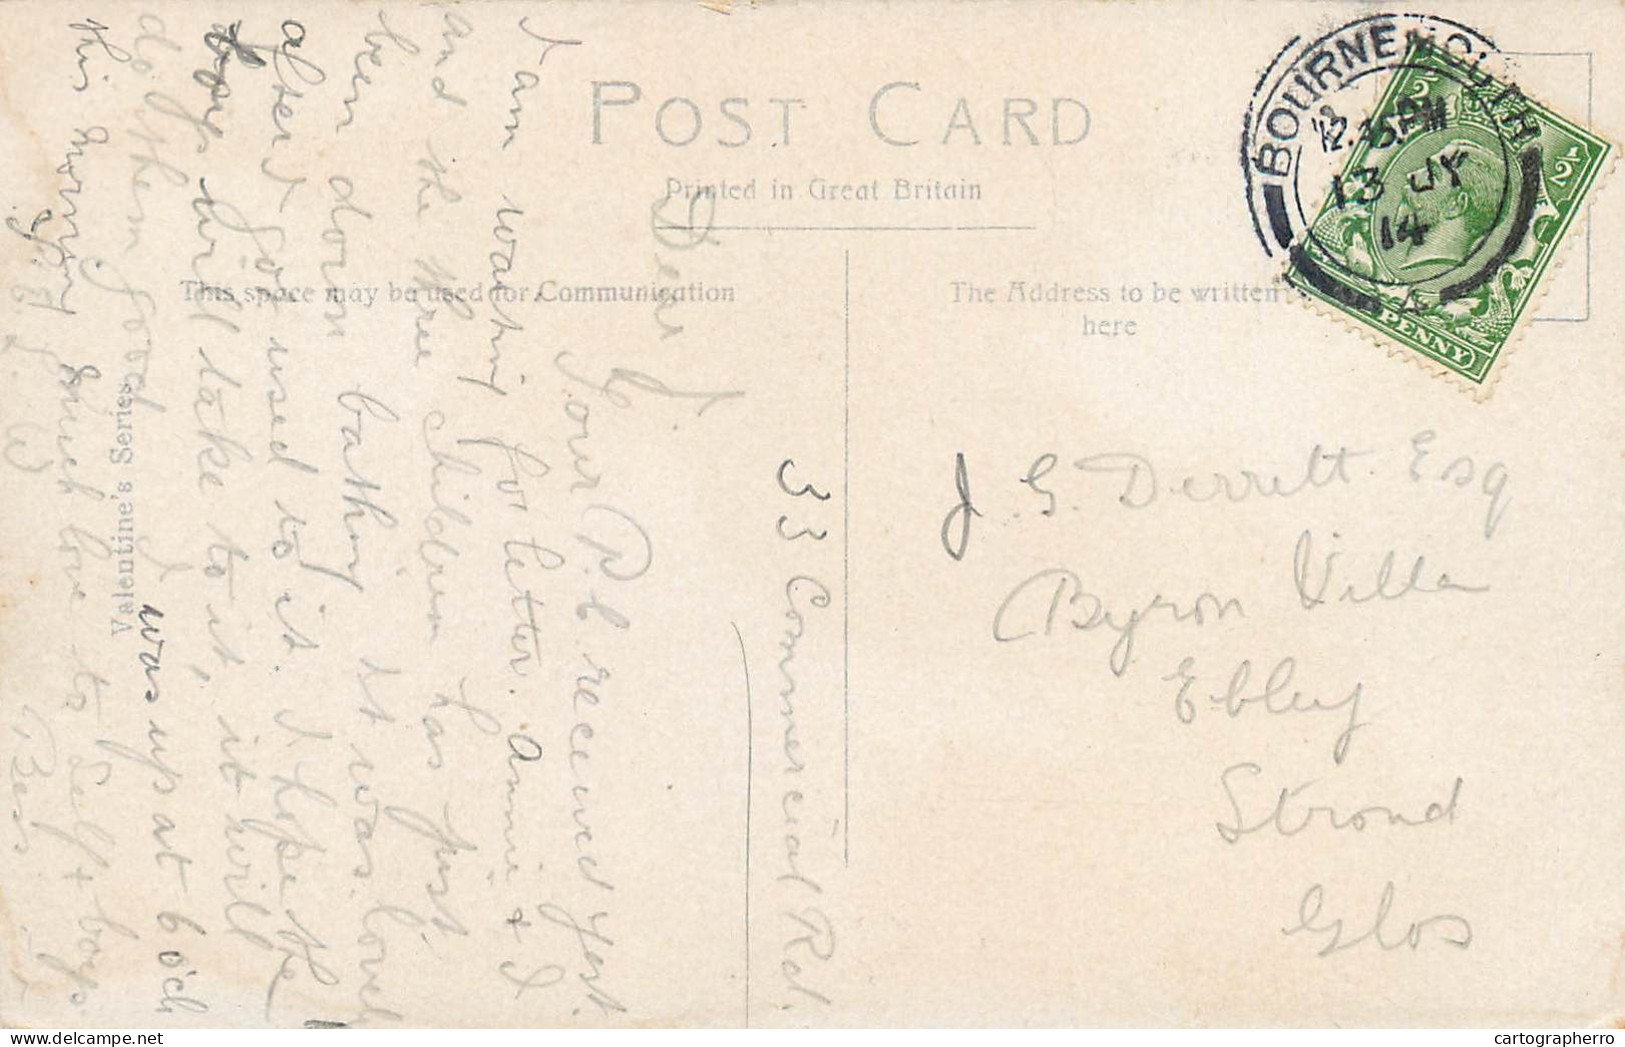 POST CARD
Printed in Great Britain
This space may be used for Communication
The Address to be written
here
Valentine's Series
BOURNEMOUTH
12.45PM
13 JY
14
A
½
½
PENNY
33 Commercial Rd.
Dear J.
Your P.C. received yest.
I am waiting for letter. Annie & I
and the three children has just
been down bathing it was lovely
after I got used to it. I hope the
boys will take to it, it will
do them good I was up at 6 o'cl
this morning much love to self & boys
Bess
J. G. Derrett. Esq
Byron Villa
Ebley
Stroud
Glos
cartographerro
delcampe.net